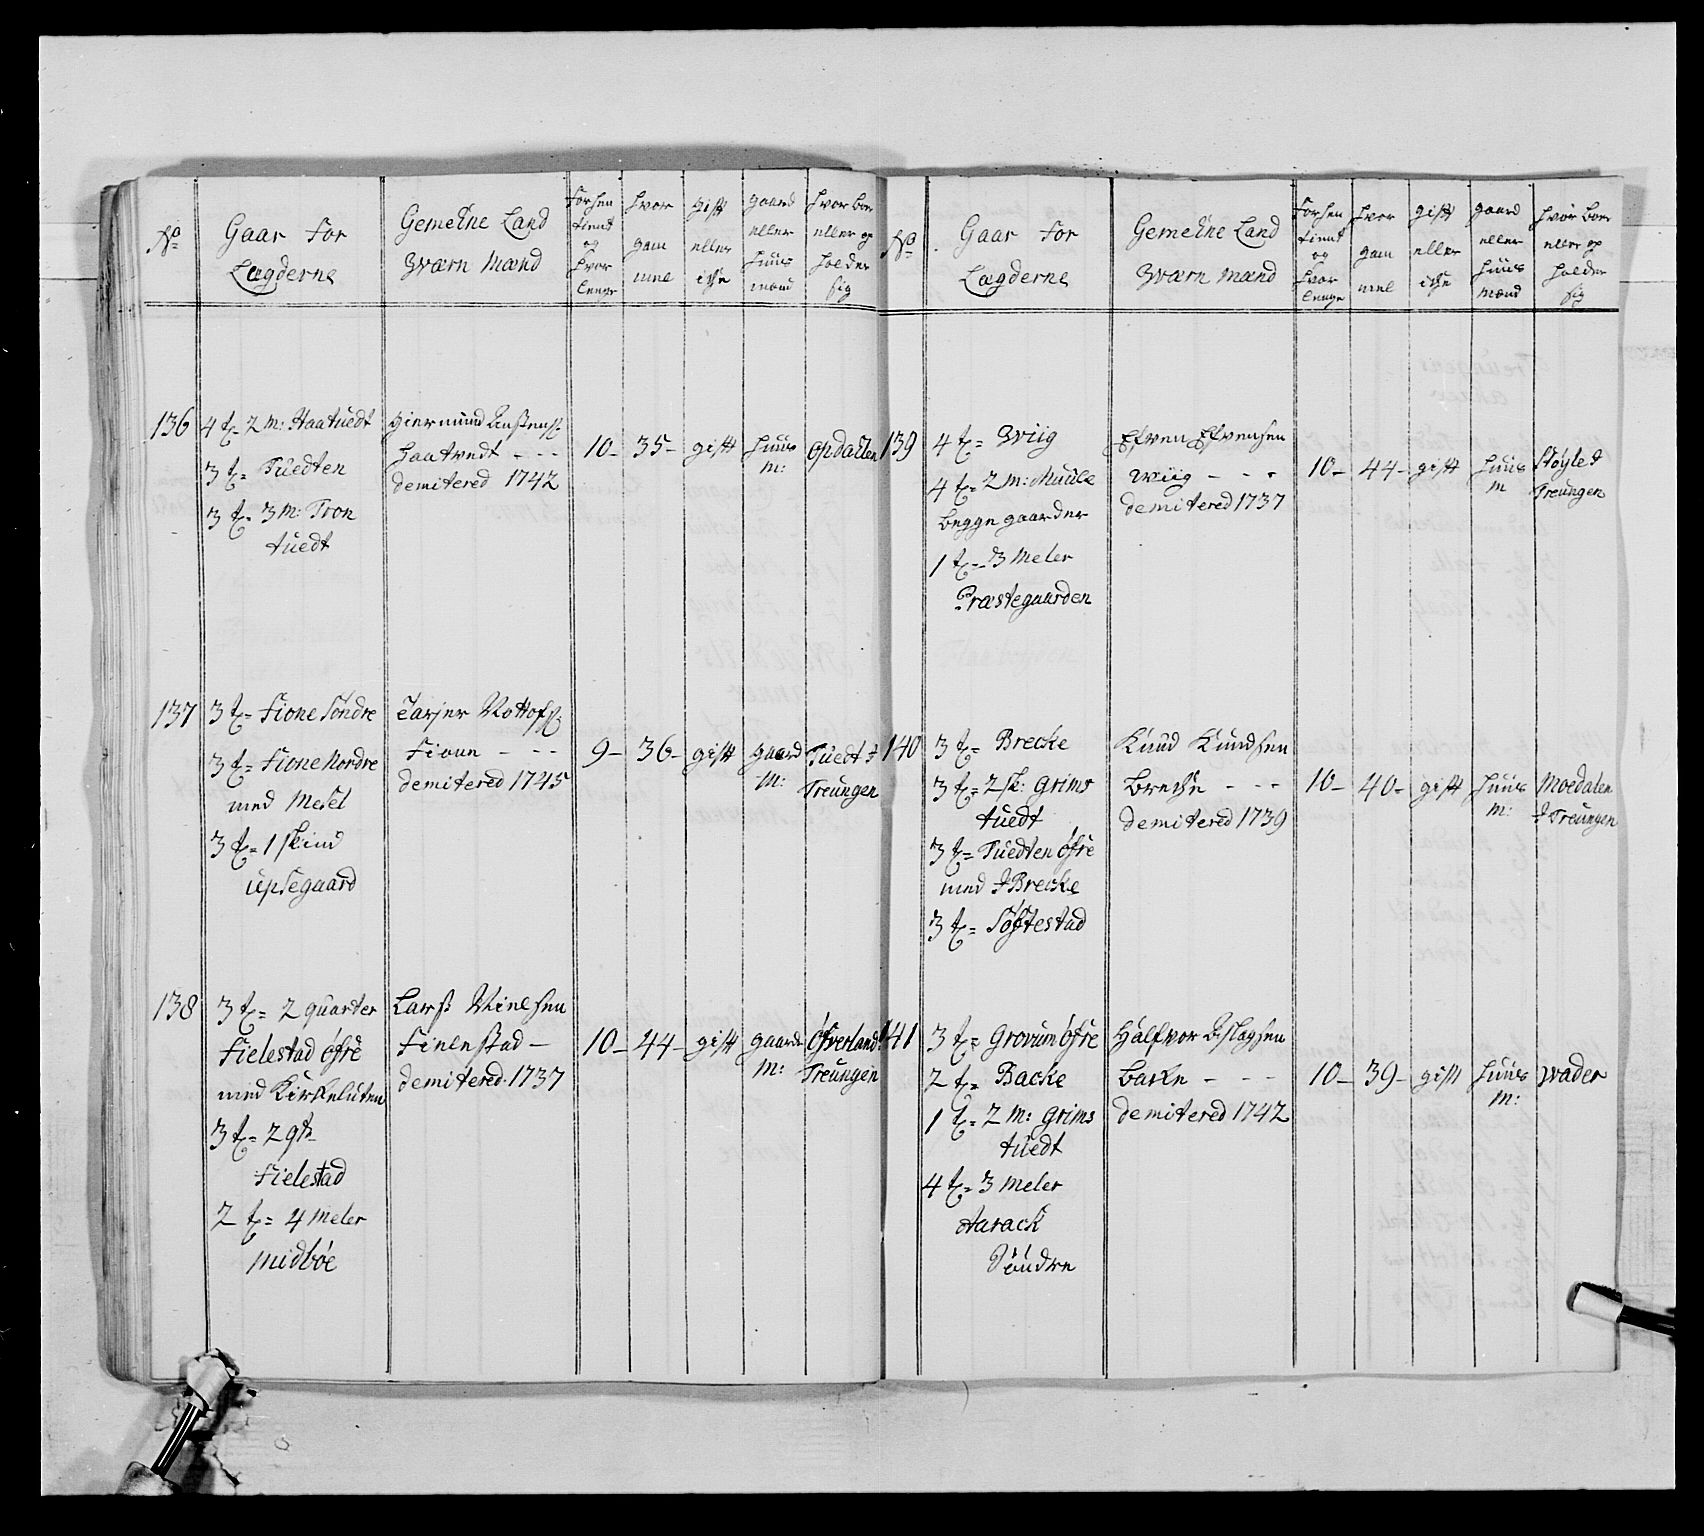 No
Gaar For
Lægderne
Gemeine Land
Wærn Mænd
Forhen
tient
og
hvor
lenge
hvor
gam
mel
gift
eller
iche
gaard
eller
huus
mand
hvor boer
eller op
holder
sig
136
4 t= 2 m: Haatuedt
3 t= Tuedten
3 t= 3 m: Tron
tuedt
Giermund
Haatvedt - - -
demitered 1742
10- 35- gift huus
m:
Opdallen
137
3 t= Fione Søndre
3 t= Fione Nordre
med Mesel
3 t= 1 skind
Upsegaard
Tarjer
Fioun - - -
demitered 1745
9- 36- gift gaard
M:
Tuedt i
Treungen
138
3 t= 2 quarter
Fielestad Øfre
med Kirkeluten
3 t= 2 qt
Fielestad
2 t= 4 meler
Midbøe
Larss Nielsen
demitered 1737
10- 44- gift gaard
M:
Øfverland
Treungen
No
Gaar For
Lægderne
Gemeine Land
Wærn Mænd
Forhen
tient
og
hvor
lenge
hvor
gam
mel
gift
eller
iche
gaard
eller
huus
mænd
hvor boer
eller op
holder
sig
139
4 t= Wiig
4 t= 2 m: Muule
begge gaarder
1 t= 3 Meler
Præstegaarden
Efven Efvensen
Wiig - -
demitered 1737
10- 44- gift huus
m
Støyled
Treungen
140
3 t= Brecke
3 t= 2 sk: Grims
tuedt
3 t= Tuedten Øfre
med J Brecke
3 t= Søftestad
Knud Knudsen
Breche - - -
demitered 1739
10- 40- gift huus
m:
Moedalen
J Treungen
141
3 t= Grovum Øfre
2 t= Backe
1 t= 2 m: Grims
tuedt
4 t= 3 meler
Aarack
Søndre
Halfvor Aslagsen
Backe - - -
demitered 1742
10- 39- gift huus
m:
Wader